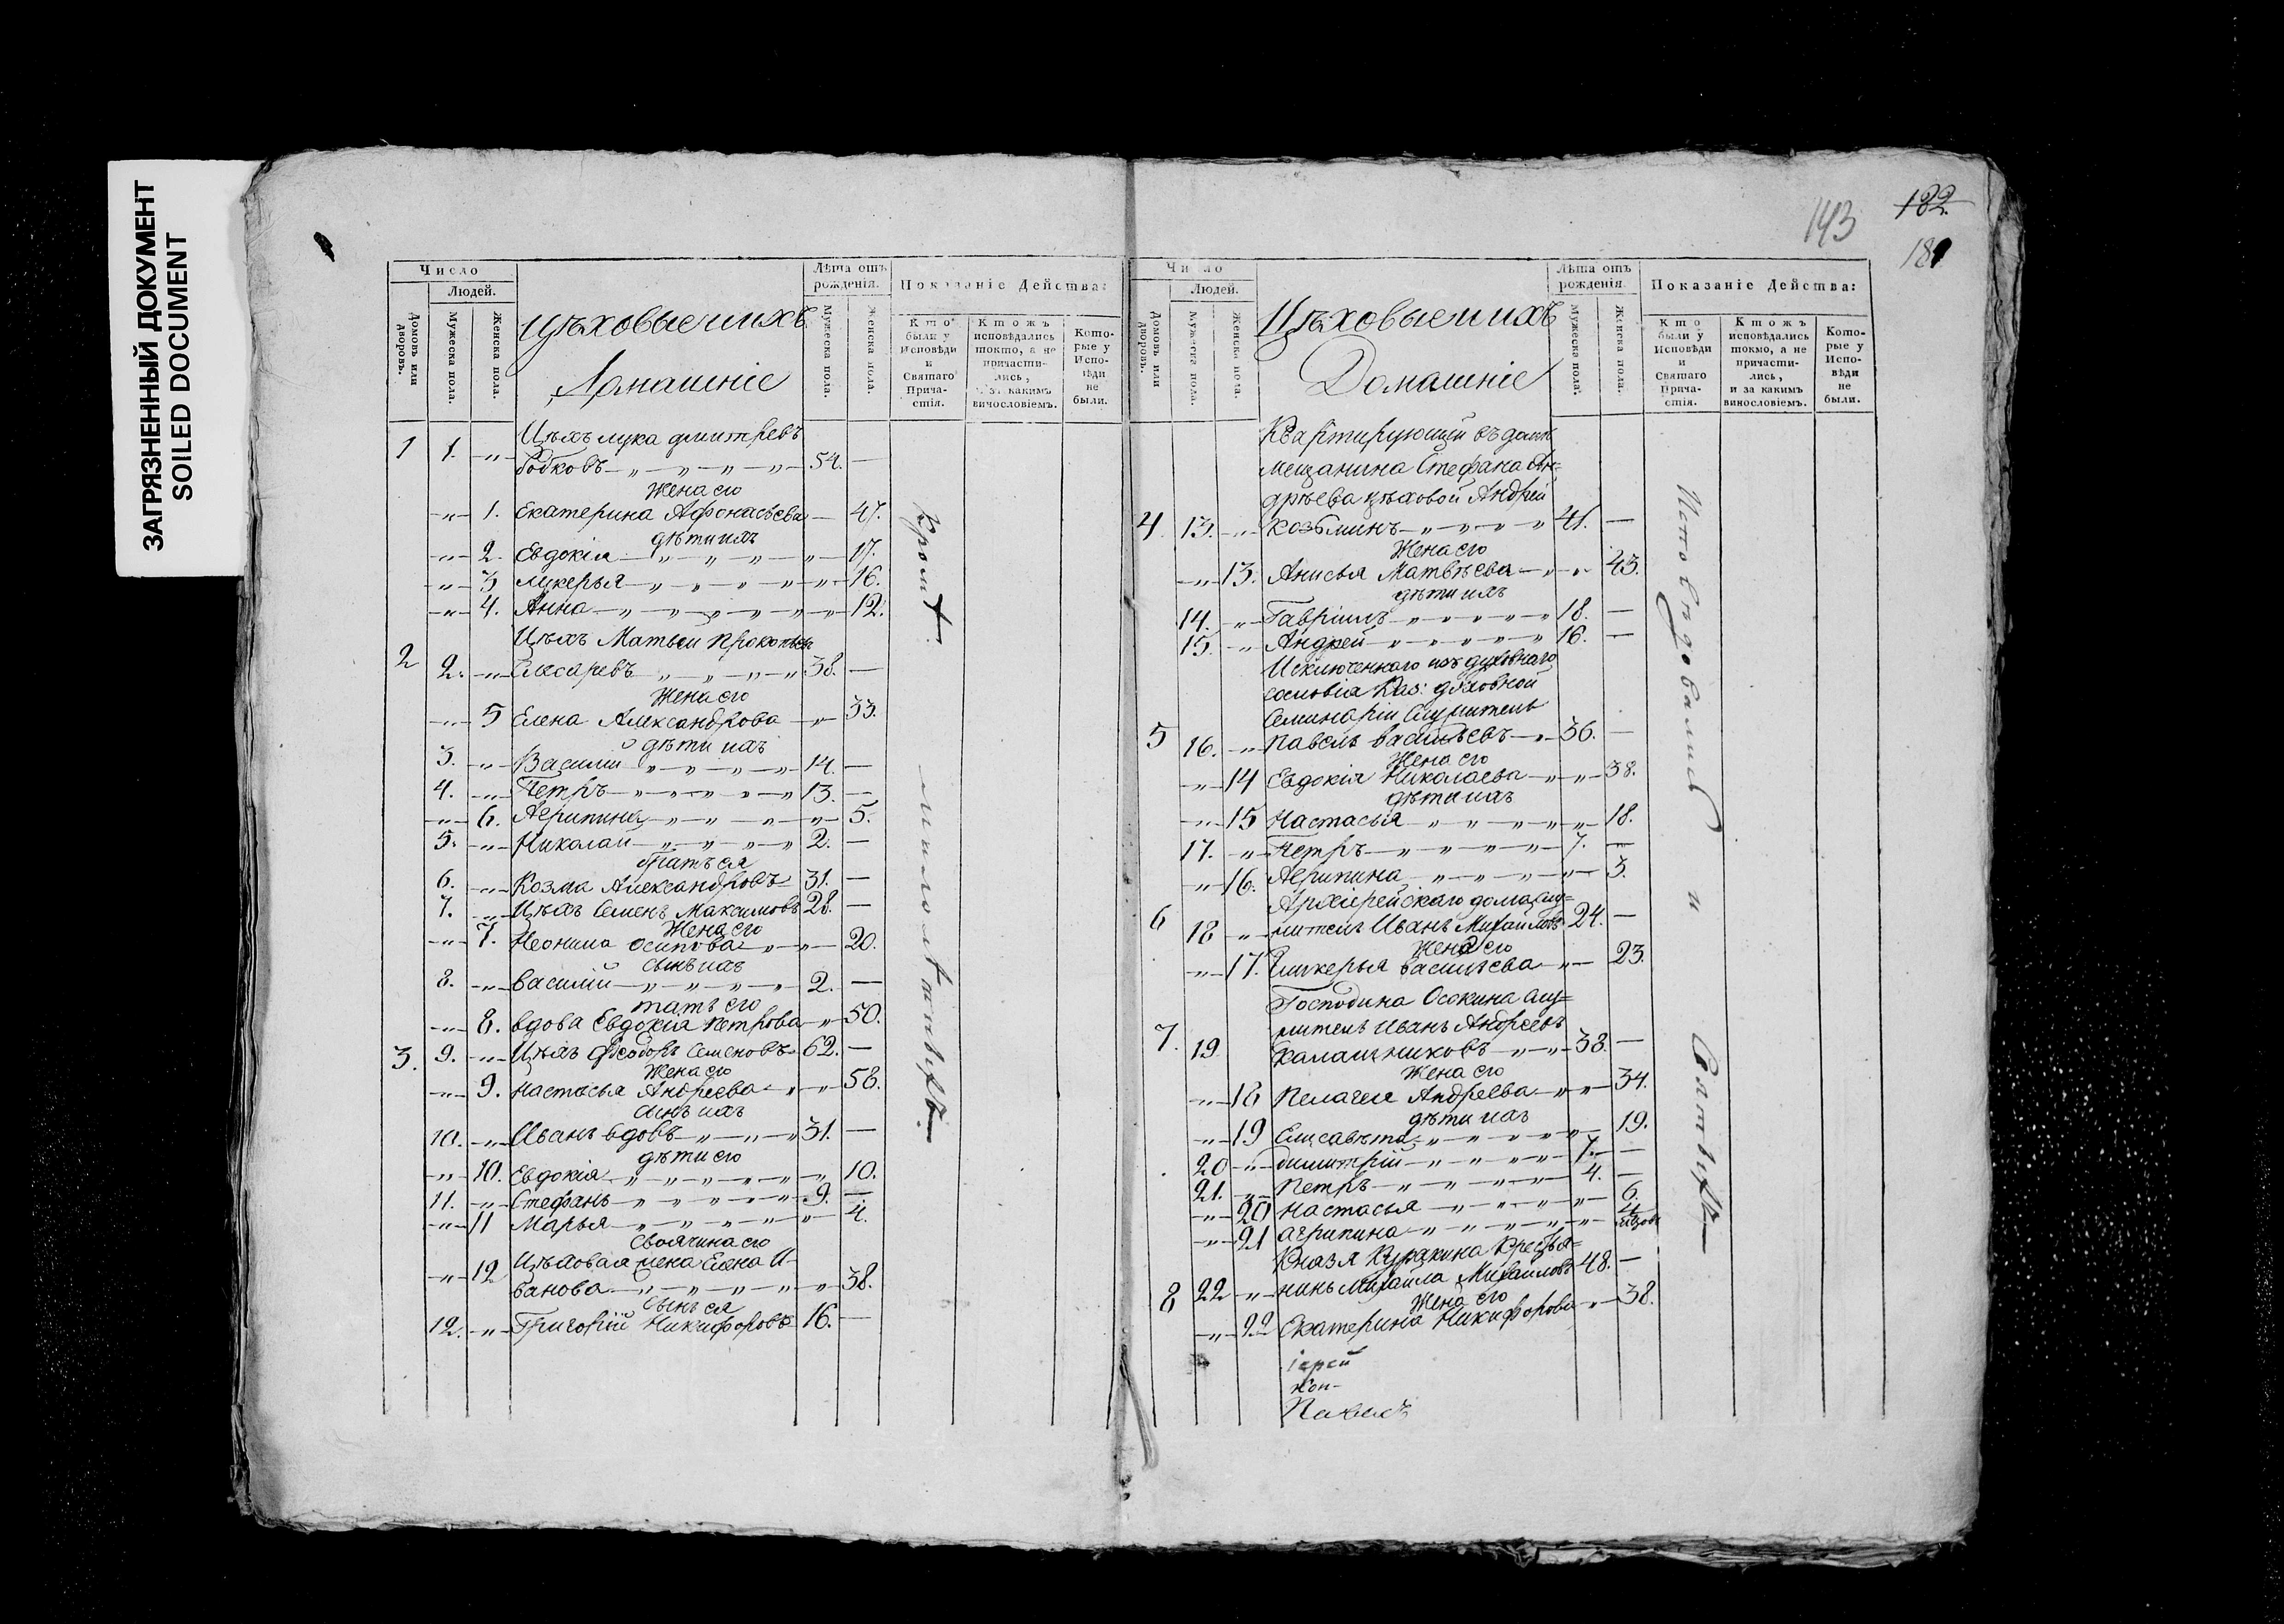 ЗАГРЯЗНЕННЫЙ ДОКУМЕНТ
SOILED DOCUMENT
143
182.
181
Число
Людей.
Домовъ или дворовъ.
Мужеска пола.
Женска пола.
Цѣховые и ихъ
Домашніе
Лѣта отъ рожденія.
Мужеска пола.
Женска пола.
Показаніе Действа:
Кто были у Исповѣди и Святаго Причастія.
Ктожъ исповѣдались токмо, а не причастились, и за какимъ винословіемъ.
Которые у Исповѣди не были.
Цѣхъ Лука Дмитревъ
1 1. -„- Бобковъ -„-„-„-„- 54. —
Жена его
-„- 1. Екатерина Афонасьева — 47.
дѣти ихъ
-„- 2 Евдокія -„-„-„-„- 17.
-„- 3 Лукерья -„-„-„-„- 16.
-„- 4. Анна -„-„-„-„- 12.
Цѣхъ Матвеи Прокопьев
2 2. -„- Слесаревъ -„-„-„- 38. —
Жена его
-„- 5 Елена Александрова -„- 33.
дѣти ихъ
3. -„- Василій -„-„-„- 14. —
4. -„- Петръ -„-„-„- 13. —
-„- 6. Агрипина -„-„-„- 5.
5. -„- Николай -„-„-„- 2. —
братъ ея
6. -„- Козма Александровъ 31. —
7. -„- Цѣхъ Семенъ Максимовъ 28. —
Жена его
-„- 7. Неонила Осипова -„- 20.
сынъ ихъ
8. -„- Василій -„-„-„- 2. —
мать его
-„- 8. вдова Евдокія Петрова -„- 50.
3. 9. -„- Цѣхъ Феодоръ Семеновъ 62. —
Жена его
-„- 9. Настасья Андреева -„- 58.
сынъ ихъ
10. -„- Иванъ вдовъ -„-„- 31. —
дѣти его
-„- 10. Евдокія -„-„-„- 10.
11. -„- Стефанъ -„-„-„- 9. —
-„- 11 Марья -„-„-„- 4.
Своячина его
Цѣховая жена Елена И-
-„- 12 ванова -„-„-„- 38.
сынъ ея
12. -„- Григорій Никифоровъ 16. —
Число
Людей.
Домовъ или дворовъ.
Мужеска пола.
Женска пола.
Цѣховые и ихъ
Домашніе
Лѣта отъ рожденія.
Мужеска пола.
Женска пола.
Показаніе Действа:
Кто были у Исповѣди и Святаго Причастія.
Ктожъ исповѣдались токмо, а не причастились, и за какимъ винословіемъ.
Которые у Исповѣди не были.
Квартирующій въ домѣ
мещанина Стефана Ан=
дрѣева цѣховой Андрей
4 13. -„- Козьминъ -„-„-„- 41. —
Жена его
-„- 13. Анисья Матвѣева -„- 43.
дѣти ихъ
14. -„- Гавріилъ -„-„-„- 18. —
15. -„- Андрей -„-„-„- 16. —
Исключеннаго изъ духовнаго
сословія Каз: духовной
Семинаріи Служитель
5 16. -„- Павелъ Васильевъ -„- 36. —
Жена его
-„- 14 Евдокія Николаева -„- 38.
дѣти ихъ
-„- 15 Настасья -„-„-„- 18.
17. -„- Петръ -„-„-„- 7. —
-„- 16. Агрипина -„-„-„- 3.
Архіерейскаго дома слу=
6 18 -„- житель Иванъ Михайловъ 24. —
Жена его
-„- 17. Гликерья Васильева -„- 23.
Господина Осокина слу=
житель Иванъ Андреевъ
7. 19 Калашниковъ -„-„- 38. —
Жена его
-„- 18 Пелагея Андреева -„- 34.
дѣти ихъ
-„- 19 Елисавѣта -„-„-„- 19.
20 -„- Димитрій -„-„-„- 7. —
21. -„- Петръ -„-„-„- 4. —
-„- 20 Настасья -„-„-„- 6.
-„- 21 Агрипина -„-„-„-
Князя Куракина Кресть=
8 22 -„- нинъ Михайла Михайловъ 48. —
Жена его
-„- 22 Екатерина Никифорова -„- 38.
Исповѣдовались и
іерей
Павелъ